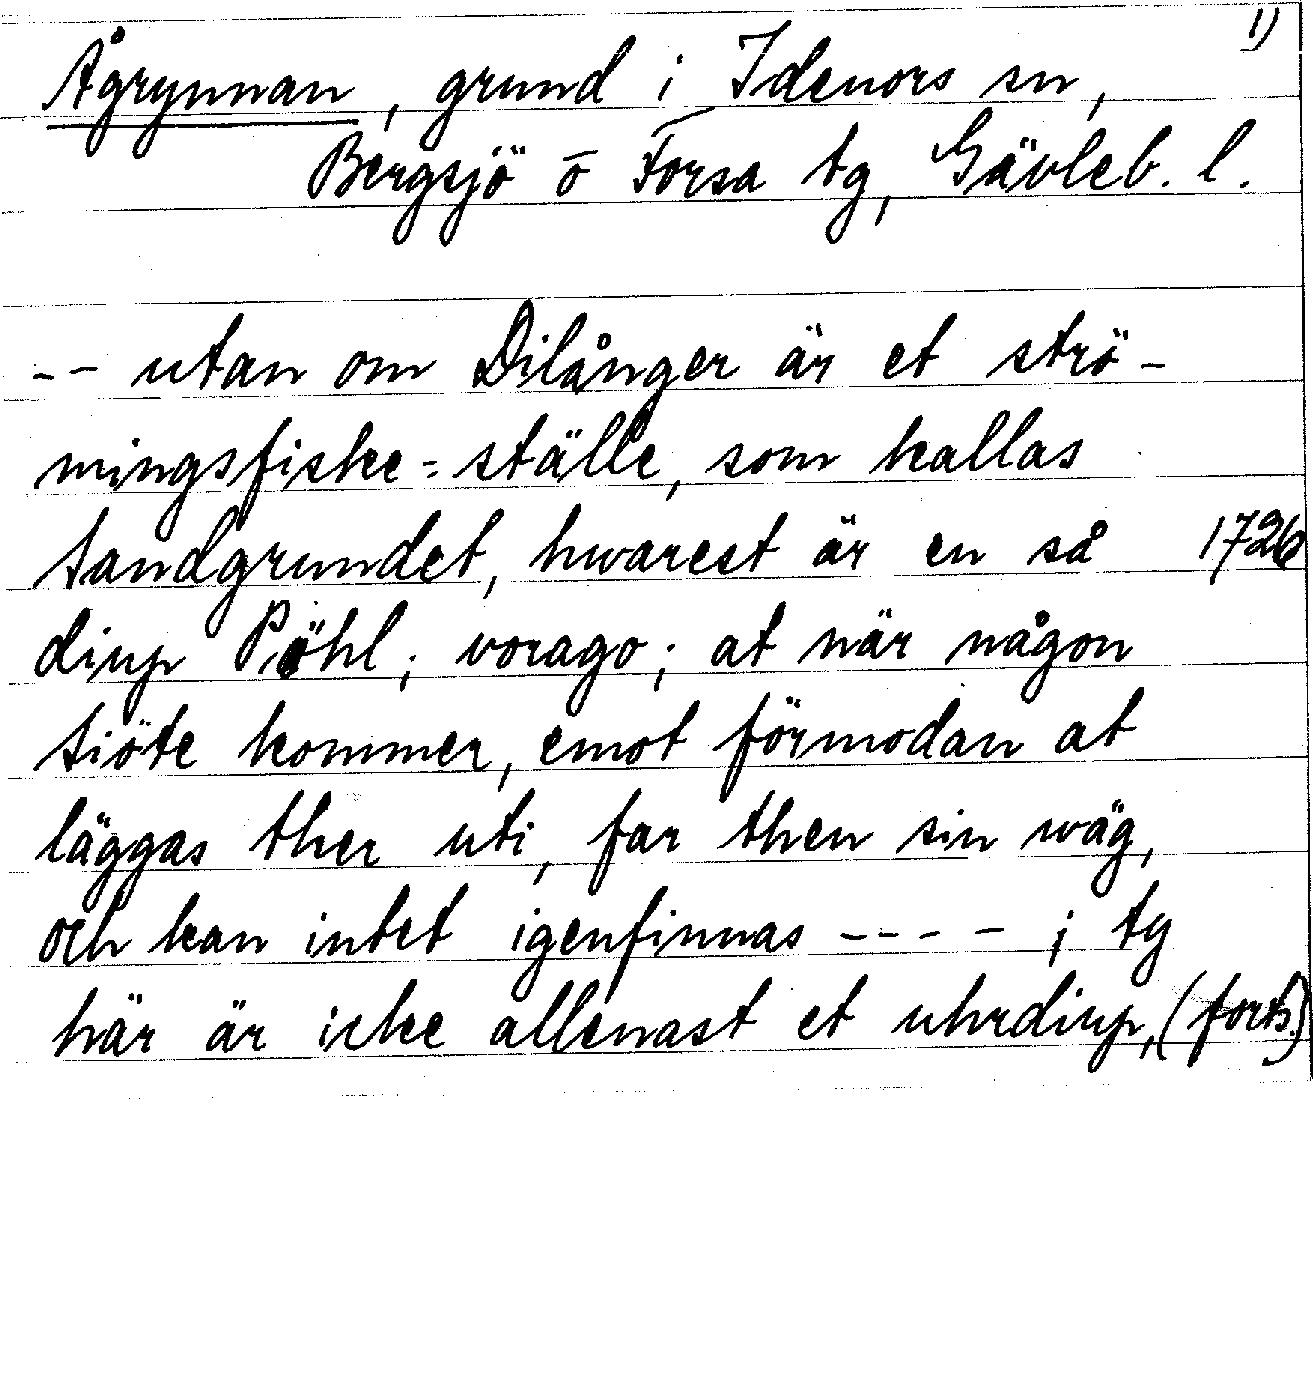 1)
Ågrynnan, grund i Idenors sn,
Bergsjö o Forsa tg, Gävleb. l.
-- utan om Dilånger är et strö-
mingsfiske-ställe, som kallas
tandgrundet, hwarest är en så 1726
diup Pöhl; vorago; at när någon
skiöte kommer, emot förmodan at
läggas ther uti, far then sin wäg,
och kan intet igenfinnas ---- ; ty
här är icke allenast et uhrdiup, (forts.)